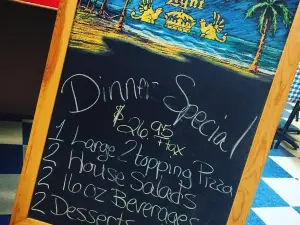 Light
Dinner Special
$26.95
+ tax
1 Large 2 topping Pizza
2 House Salads
2 16 oz Beverages
2 Desserts